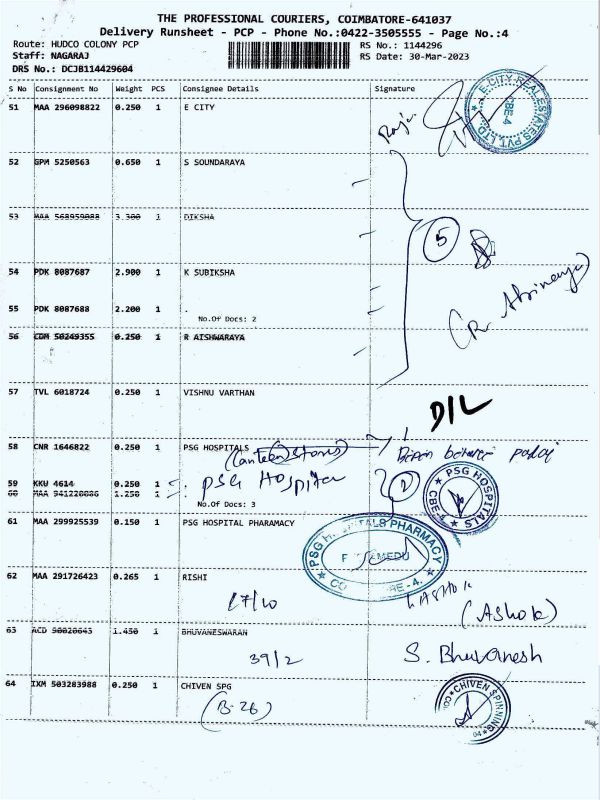 THE PROFESSIONAL COURIERS, COIMBATORE-641037
Delivery Runsheet - PCP - Phone No.:0422-3505555 - Page No.:4
Route: HUDCO COLONY PCP RS No.: 1144296
Staff: NAGARAJ RS Date: 30-Mar-2023
DRS No.: DCJB114429604
S No Consignment No Weight PCS Consignee Details Signature
51 MAA 296098822 0.250 1 E CITY
Raja
E.CITY REALESTATES PVT. LTD. CBE-4
52 GPM 5250563 0.650 1 S SOUNDARAYA
53 MAA 568959088 3.300 1 DIKSHA
5
54 PDK 8087687 2.900 1 K SUBIKSHA
(R. Abinaya)
55 PDK 8087688 2.200 1 .
No.Of Docs: 2
56 CDM 50249355 0.250 1 R AISHWARAYA
57 TVL 6018724 0.250 1 VISHNU VARTHAN
D/L
58 CNR 1646822 0.250 1 PSG HOSPITALS
(Canteen Stores)
59 KKU 4614 0.250 1 PSG Hospital
60 MAA 941220086 1.250 1
No.Of Docs: 3
PSG HOSPITALS CBE-4
61 MAA 299925539 0.150 1 PSG HOSPITAL PHARAMACY
PSG HOSPITALS PHARMACY
62 MAA 291726423 0.265 1 RISHI
17/10
(Ashok)
63 ACD 90020643 1.450 1 BHUVANESWARAN
39/2 S. Bhuvanesh
64 IXM 503283988 0.250 1 CHIVEN SPG
(B-26)
CHIVEN SPINNING